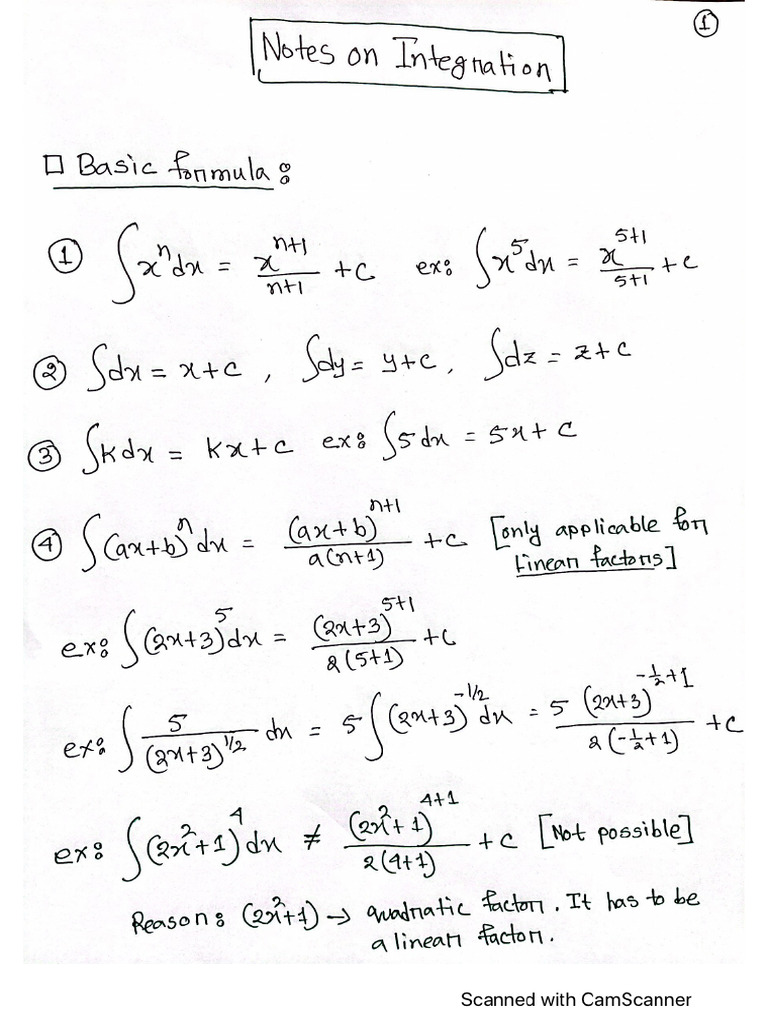 ①
Notes on Integration
□ Basic formula:
① ∫xⁿdx = xⁿ⁺¹/(n+1) + c ex: ∫x⁵dx = x⁵⁺¹/(5+1) + c
② ∫dx = x+c, ∫dy = y+c, ∫dz = z+c
③ ∫kdx = kx+c ex: ∫5dx = 5x+c
④ ∫(ax+b)ⁿdx = (ax+b)ⁿ⁺¹/a(n+1) + c [only applicable for
Linear factors]
ex: ∫(2x+3)⁵dx = (2x+3)⁵⁺¹/2(5+1) + c
ex: ∫5/(2x+3)^(1/2) dx = 5∫(2x+3)^(-1/2)dx = 5 (2x+3)^(-1/2+1)/2(-1/2+1) + c
ex: ∫(2x²+1)⁴dx ≠ (2x²+1)⁴⁺¹/2(4+1) + c [Not possible]
Reason: (2x²+1) → quadratic factor. It has to be
a linear factor.
Scanned with CamScanner